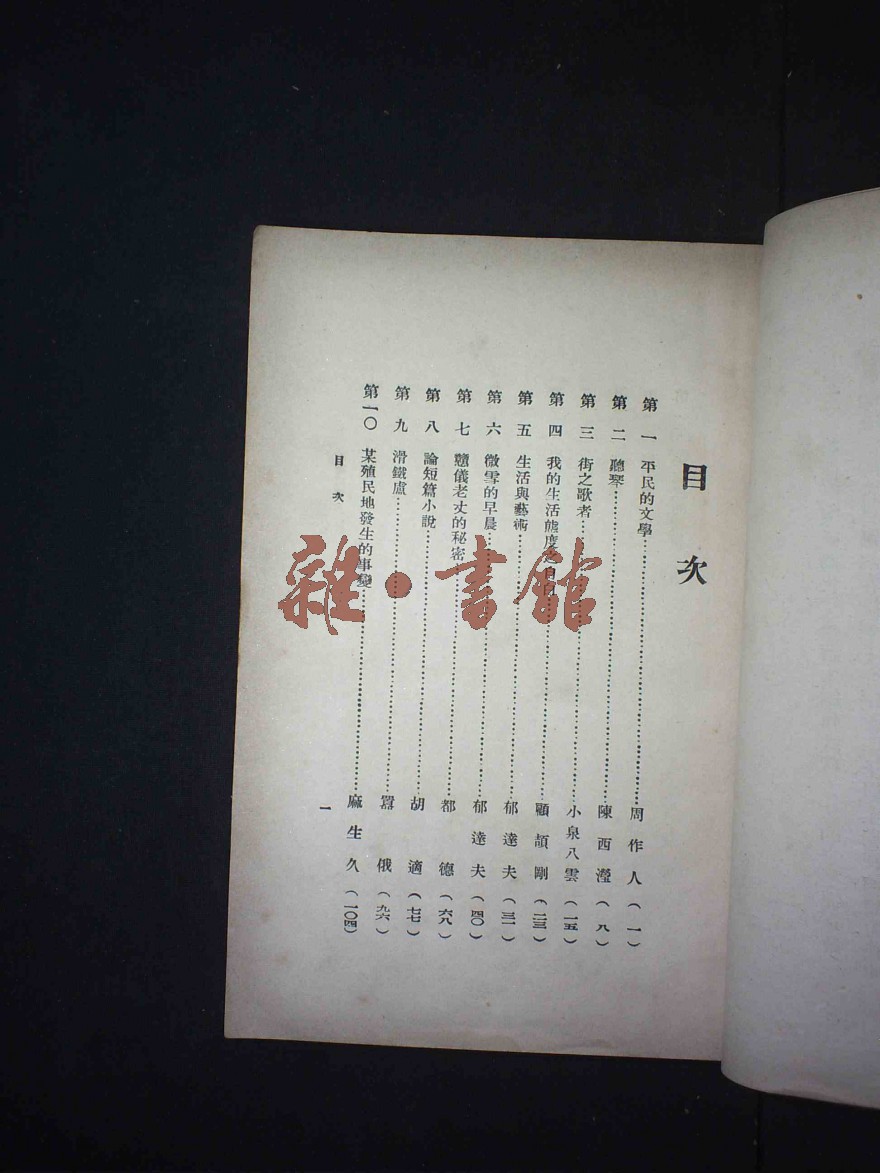 目次
第一 平民的文學 周作人(一)
第二 聽琴 陳西瀅(八)
第三 街之歌者 小泉八雲(一五)
第四 我的生活態度之自白 顧頡剛(二三)
第五 生活與藝術 郁達夫(三一)
第六 微雪的早晨 郁達夫(四〇)
第七 戆儀老丈的秘密 都德(六八)
第八 論短篇小說 胡適(七七)
第九 滑鐵盧 囂俄(九六)
第一〇 某殖民地發生的事變 麻生久(一〇四)
目次
一
雜·書館